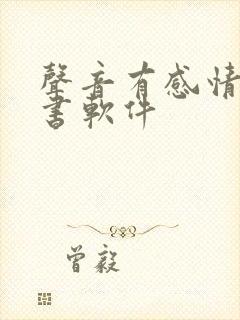 聲音有感情
書軟件
曾毅